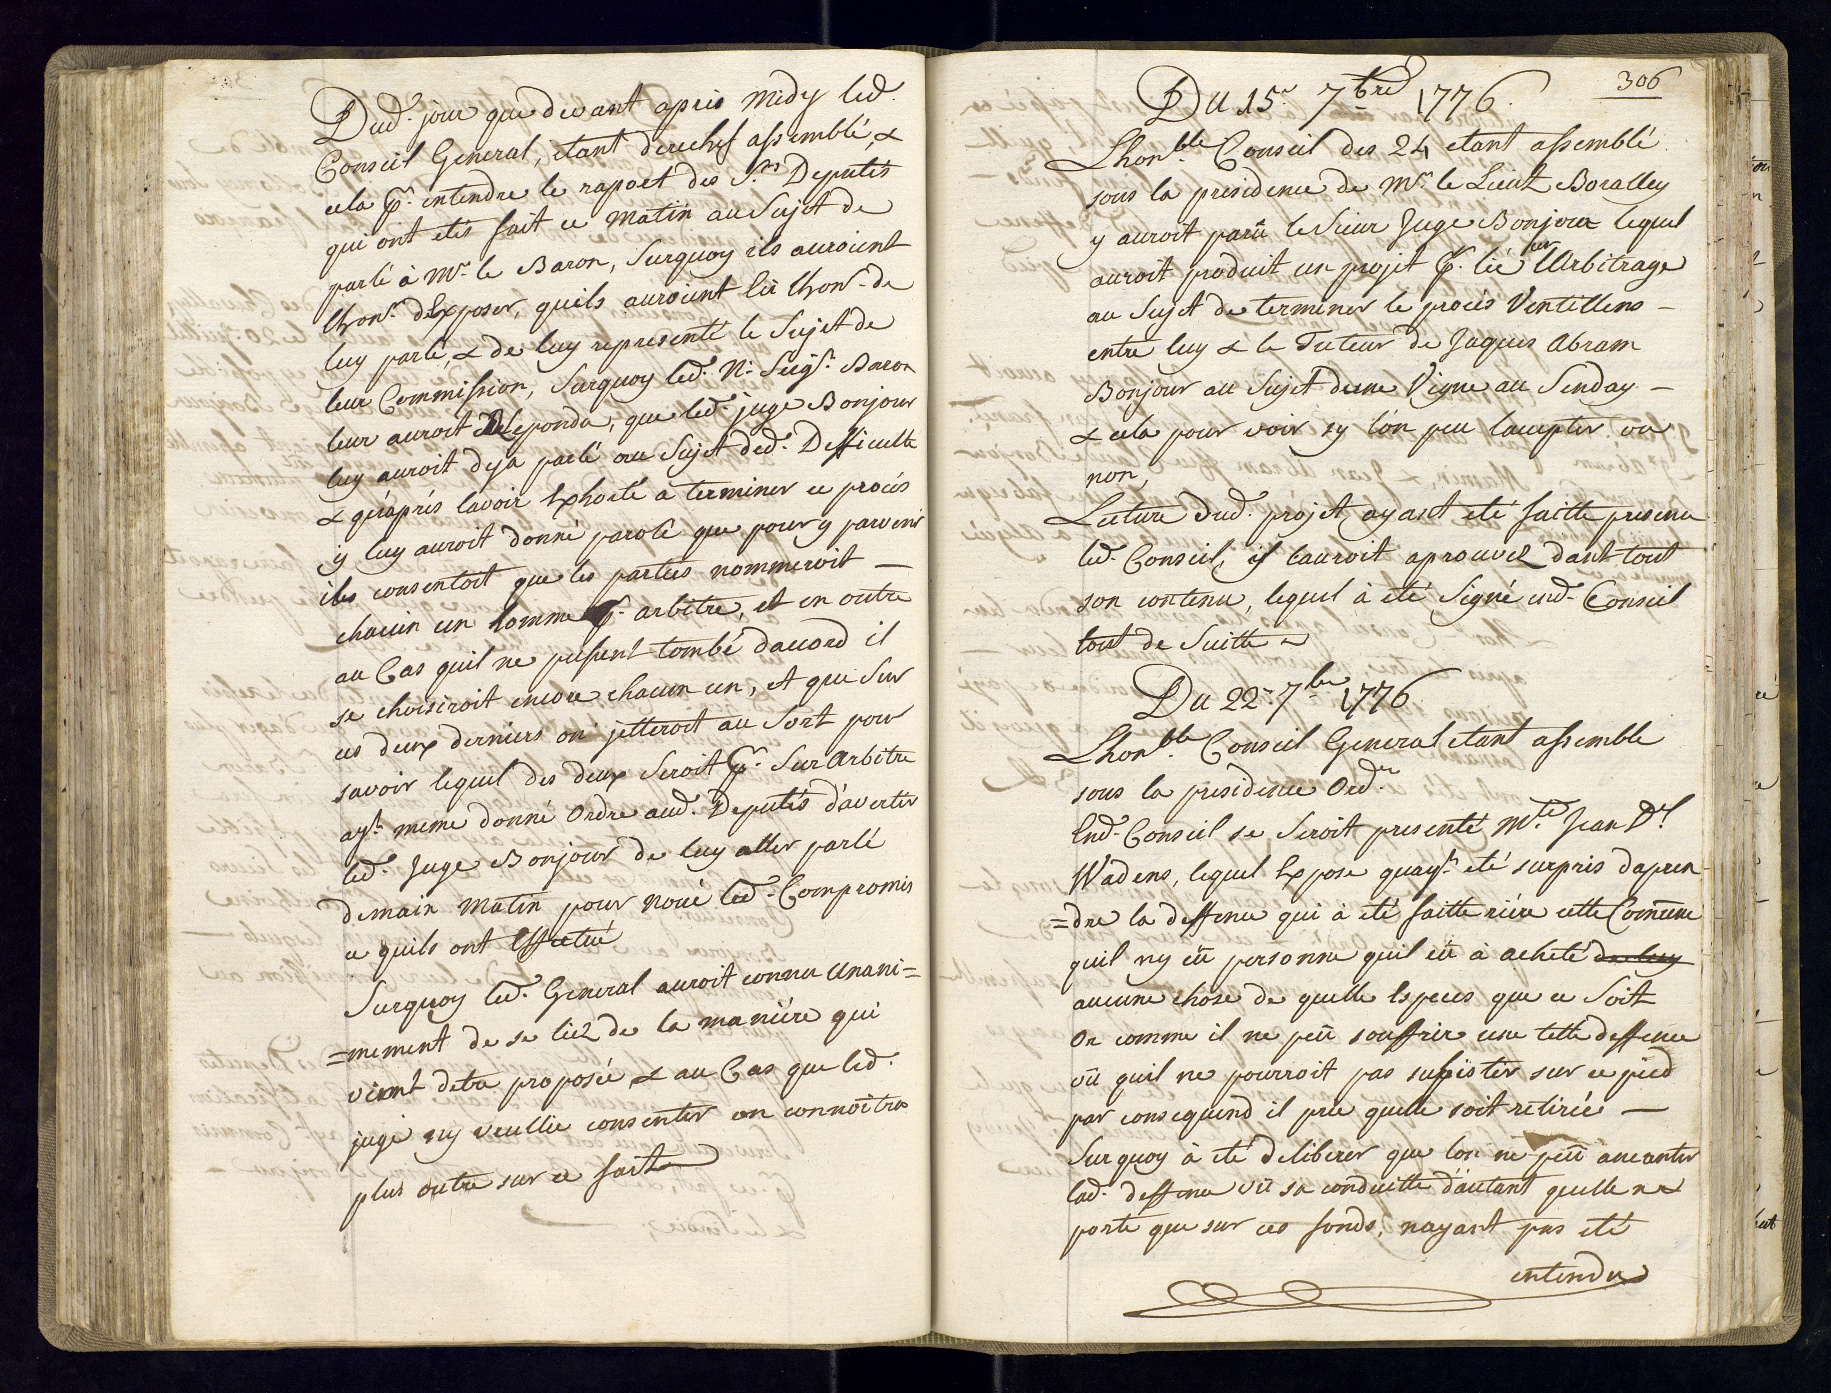 Dud. jour que devant apris Midy led.
Conseil General, etant derechef assemblé, &
cela pr. entendre le raport des Srs. Deputés
qui ont etés fait ce matin au Sujet de
parlé à Mr. le Baron, Surquoy ils auroient
lhonr. dExposer, quils auroient lû lhonr. de
luy parlé, & de luy representé le Sujet de
leur Commission, Surquoy led. N. Seigr. Baron
leur auroit Reponda, que led. juge Bonjour
luy auroit deja parlé au Sujet dud. Difficulte
& quapris lavoir Exhorté a terminer ce procés
y luy auroit donné parole que pour y parvenir
ils consentoit que les parties nommeroit —
chacun un homme pr. arbitre, et en outre
au Cas quil ne pussent tombé dacord il
se choisiroit encore chacun un, et que sur
ces deux derniers on jetteroit au Sort pour
savoir lequel des deux Seroit pr. Sur Arbitre
ayt. meme donné Ordre aud. Deputés d'avertir
led. Juge Bonjour de luy aller parlé
demain matin pour noué led. Compromis
ce quils ont Effectué
Surquoy led. General auroit connu Unani=
=mement de se liez de la maniére qui
vient detre proposée & au Cas que led.
juge ny veullie consenter on connoîtra
plus outre sur ce fait
306
Du 15e. 7bre 1776.
Lhonble. Conseil des 24 etant assemblé
sous la presidence de Mr. le Lieut Boralley
y auroit parû le Sieur Juge Bonjour lequel
auroit produit un projet pr. lié sur lArbitrage
au Sujet de terminer le procés Ventillens —
entre luy & le Tuteur de Jaques Abram
Bonjour au Sujet dune Vigne au Senday —
& cela pour voir sy lón peu laccepter ou
non,
Lecture dud. projet ayant eté faitte presence
led. Conseil, il lauroit aprouvez dans tout
son contenu, lequel à eté Signé end. Conseil
tout de Suitte
Du 22e. 7bre 1776
Lhonble. Conseil General etant assemble
sous la presidence Ordre.
End. Conseil se Seroit presenté Mtre. Jean Dl.
Wadens, lequel Expose quayt. eté surpris dapren=
=dre la deffence qui à eté faitte riére cette Comune
quil ny eû personne quil eû à acheté de luy
aucune chose de quelle Especes que ce Soit
Or comme il ne peû souffrir une telle deffence
vû quil ne pourroit pas supsister sur ce pied
par consequend il prie quelle soit retirée —
Surquoy à eté deliberer que lon ne peû aneanter
lad. deffence vû sa conduitte d'autant quelle ne
porte que sur ces fonds, nayant pas eté
entendu